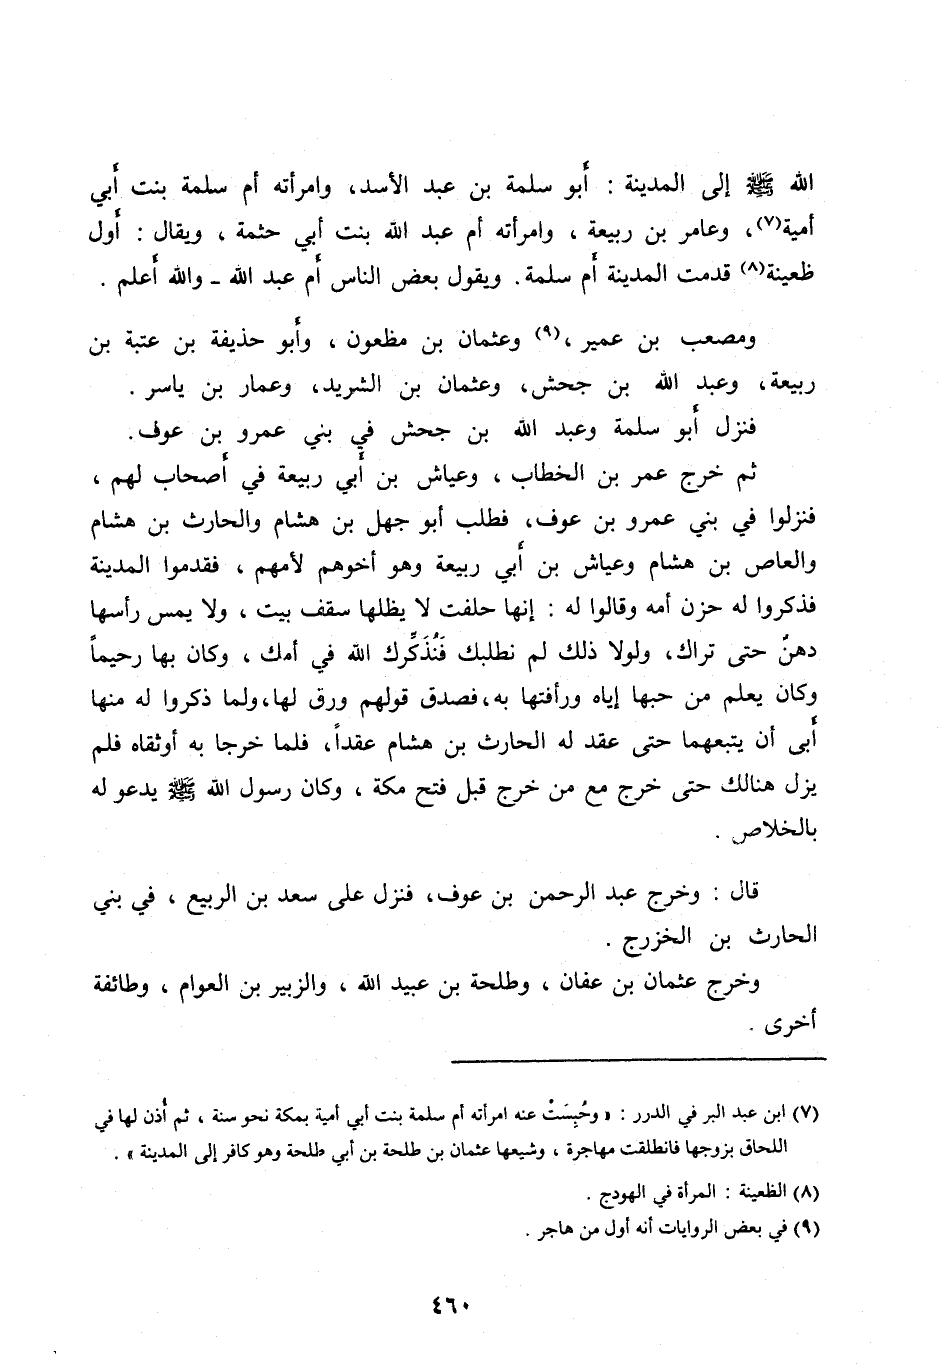 الله ﷺ إلى المدينة : أَبو سلمة بن عبد الأسد، وامرأته أم سلمة بنت أَبي
أمية(٧)، وعامر بن ربيعة ، وامرأته أم عبد الله بنت أبي حثمة ، ويقال : أَول
ظعينة(٨) قدمت المدينة أَم سلمة. ويقول بعض الناس أَم عبد الله ـ والله أَعلم .
ومصعب بن عمير ،(٩) وعثمان بن مظعون ، وأَبو حذيفة بن عتبة بن
ربيعة، وعبد الله بن جحش، وعثمان بن الشريد، وعمار بن ياسر .
فنزل أَبو سلمة وعبد الله بن جحش في بني عمرو بن عوف.
ثم خرج عمر بن الخطاب ، وعياش بن أَبي ربيعة في أَصحاب لهم ،
فنزلوا في بني عمرو بن عوف، فطلب أبو جهل بن هشام والحارث بن هشام
والعاص بن هشام وعياش بن أَبي ربيعة وهو أخوهم لأمهم ، فقدموا المدينة
فذكروا له حزن أمه وقالوا له : إنها حلفت لا يظلها سقف بيت ، ولا يمس رأسها
دهنٌ حتى تراك، ولولا ذلك لم نطلبك فَنُذَكِّرك الله في أمك ، وكان بها رحيماً
وكان يعلم من حبها إياه ورأفتها به،فصدق قولهم ورق لها،ولما ذكروا له منها
أَبى أن يتبعهما حتى عقد له الحارث بن هشام عقداً، فلما خرجا به أوثقاه فلم
يزل هنالك حتى خرج مع من خرج قبل فتح مكة ، وكان رسول الله ﷺ يدعو له
بالخلاص .
قال : وخرج عبد الرحمن بن عوف، فنزل على سعد بن الربيع ، في بني
الحارث بن الخزرج .
وخرج عثمان بن عفان ، وطلحة بن عبيد الله ، والزبير بن العوام ، وطائفة
أخرى .
(٧) ابن عبد البر في الدرر : « وحُبِسَتْ عنه امرأته أم سلمة بنت أبي أمية بمكة نحو سنة ، ثم أُذن لها في
اللحاق بزوجها فانطلقت مهاجرة ، وشيعها عثمان بن طلحة بن أبي طلحة وهو كافر إلى المدينة » .
(٨) الظعينة : المرأة في الهودج .
(٩) في بعض الروايات أنه أول من هاجر .
٤٦٠